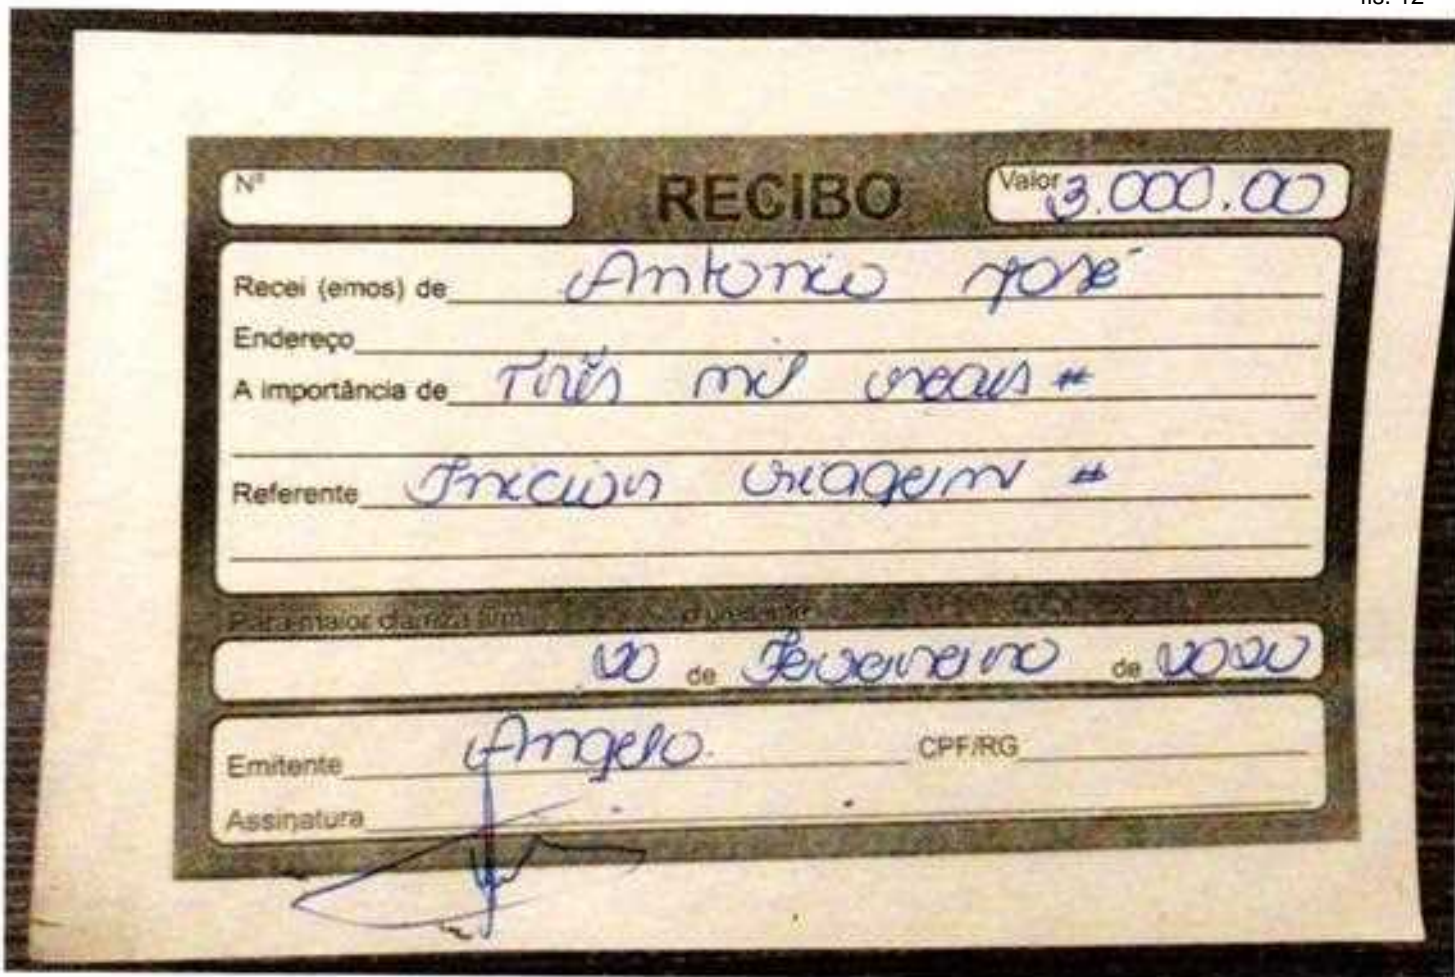 fls. 12
Nº RECIBO Valor 3.000.00
Recei (emos) de Antonio José
Endereço
A importância de Três mil reais #
Referente viagem #
Para maior clareza firm
20 de Fevereiro de 2020
Emitente Angelo. CPF/RG
Assinatura